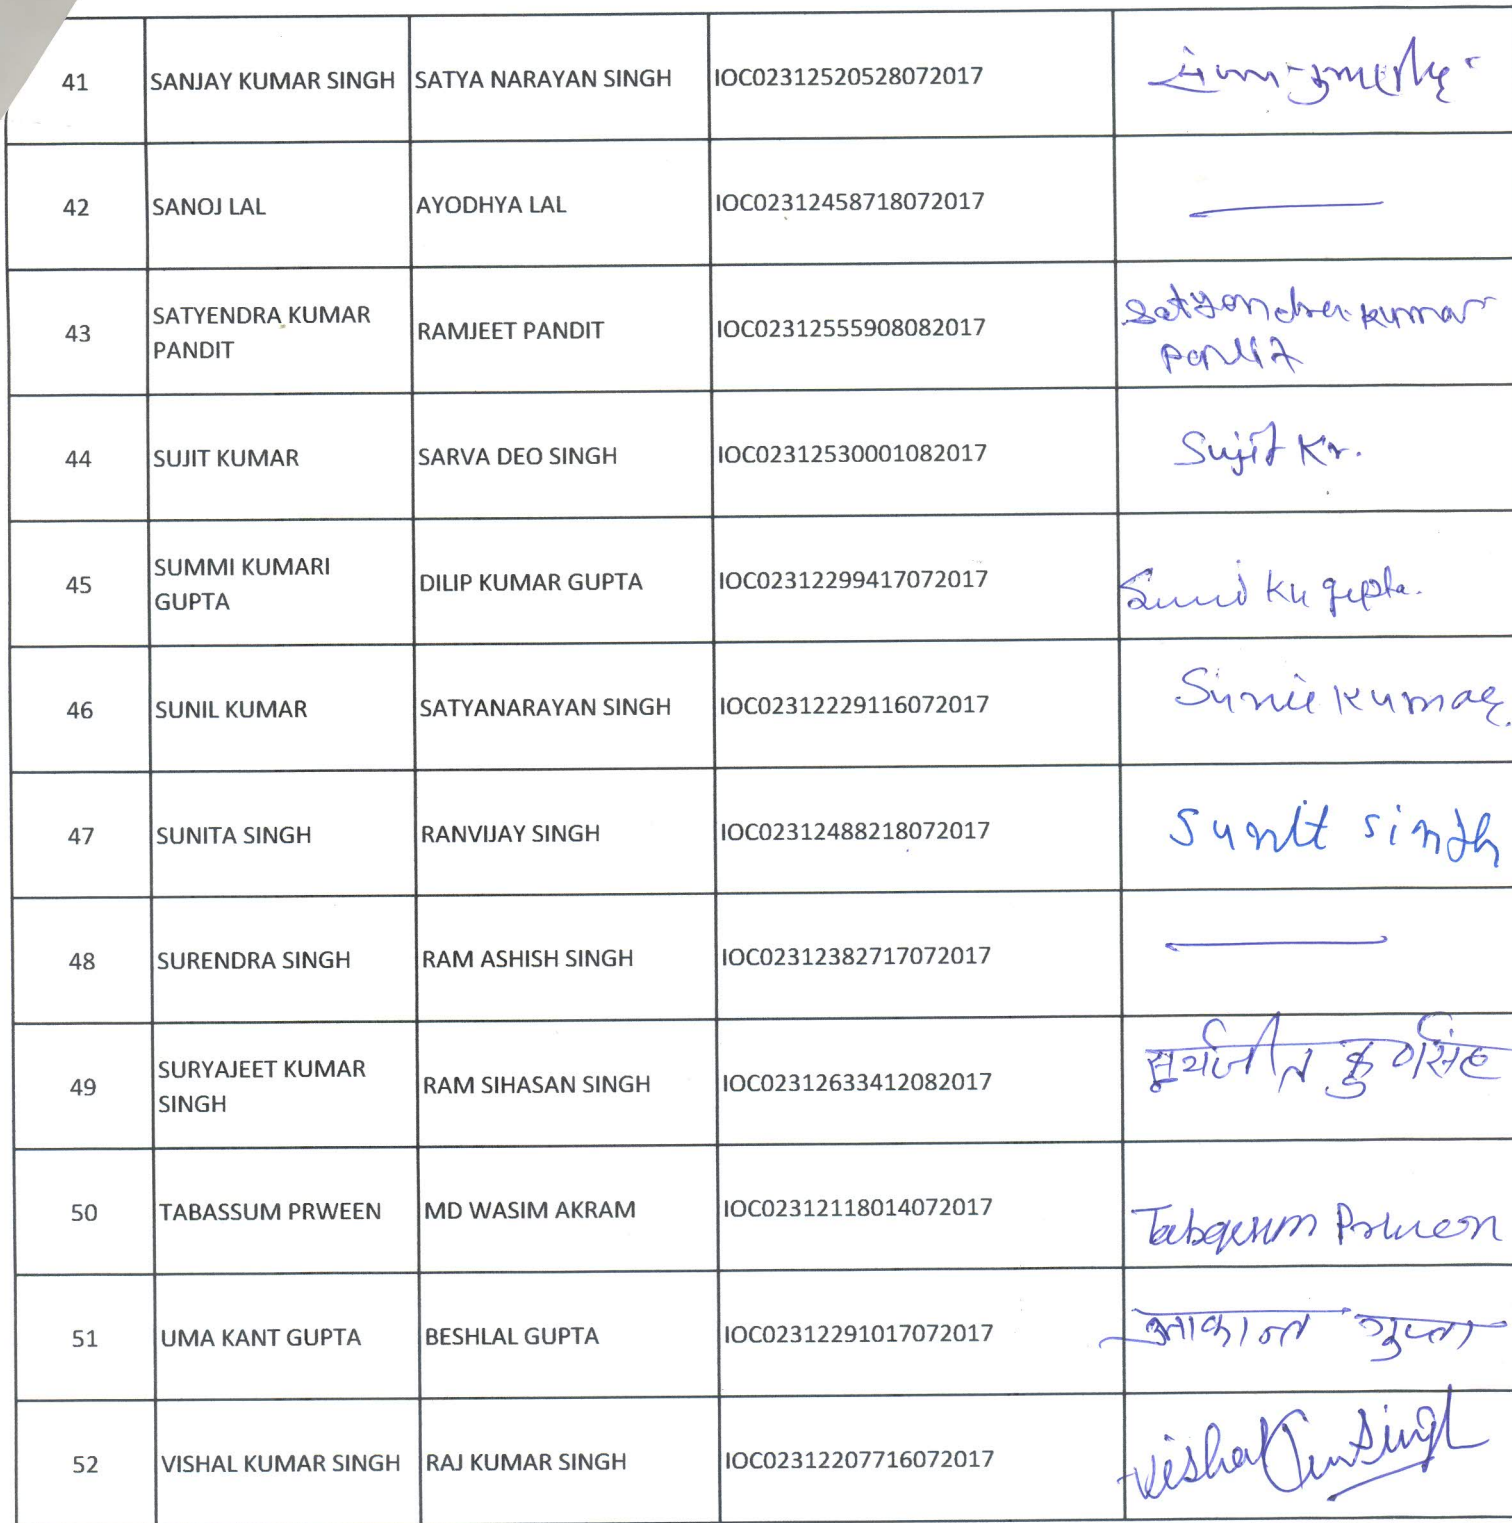 41 SANJAY KUMAR SINGH SATYA NARAYAN SINGH IOC02312520528072017
42 SANOJ LAL AYODHYA LAL IOC02312458718072017
43 SATYENDRA KUMAR PANDIT RAMJEET PANDIT IOC02312555908082017 Satyendra kumar
Pandit
44 SUJIT KUMAR SARVA DEO SINGH IOC02312530001082017 Sujit Kr.
45 SUMMI KUMARI GUPTA DILIP KUMAR GUPTA IOC02312299417072017 Ku gupta.
46 SUNIL KUMAR SATYANARAYAN SINGH IOC02312229116072017 Sunil Kumar
47 SUNITA SINGH RANVIJAY SINGH IOC02312488218072017 Sunit singh
48 SURENDRA SINGH RAM ASHISH SINGH IOC02312382717072017
49 SURYAJEET KUMAR SINGH RAM SIHASAN SINGH IOC02312633412082017 सुर्यजीत कु० सिंह
50 TABASSUM PRWEEN MD WASIM AKRAM IOC02312118014072017 Tabassum Prween
51 UMA KANT GUPTA BESHLAL GUPTA IOC02312291017072017 गुप्ता
52 VISHAL KUMAR SINGH RAJ KUMAR SINGH IOC02312207716072017 Vishal Kumar Singh